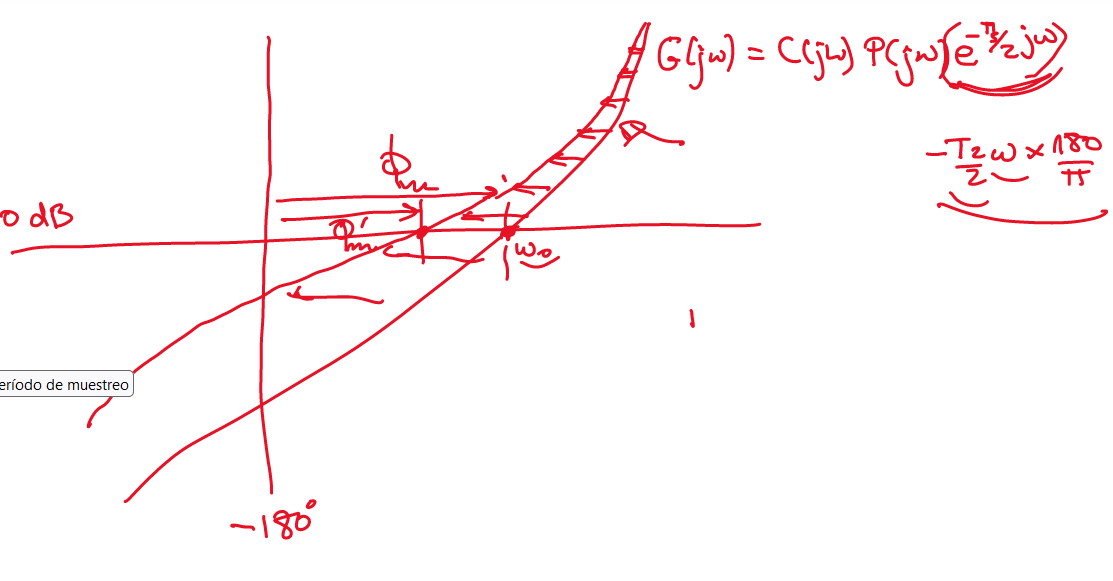 G(jω) = C(jω) P(jω) (e^{-Ts/2 jω})
-Ts/2 ω × 180/π
ϕm
0 dB
ϕ'm
ω0
eríodo de muestreo
-180°